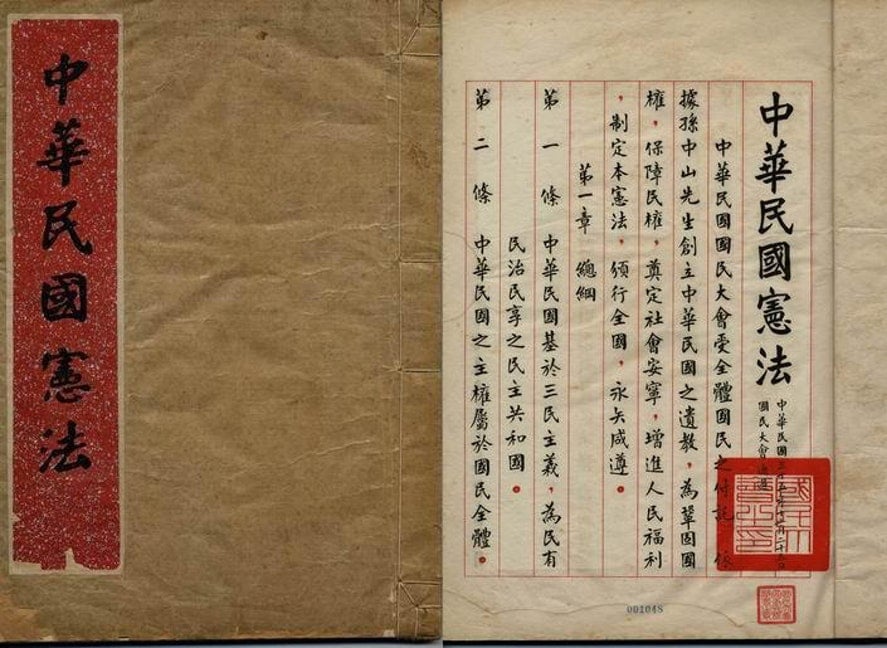 中華民國憲法
中華民國憲法
中華民國三十五年十二月二十五日
國民大會通過
中華民國國民大會受全體國民之付託，依
據孫中山先生創立中華民國之遺教，為鞏固國
權，保障民權，奠定社會安寧，增進人民福利
，制定本憲法，頒行全國，永矢咸遵。
第一章 總綱
第一條 中華民國基於三民主義，為民有
民治民享之民主共和國。
第二條 中華民國之主權屬於國民全體。
001048